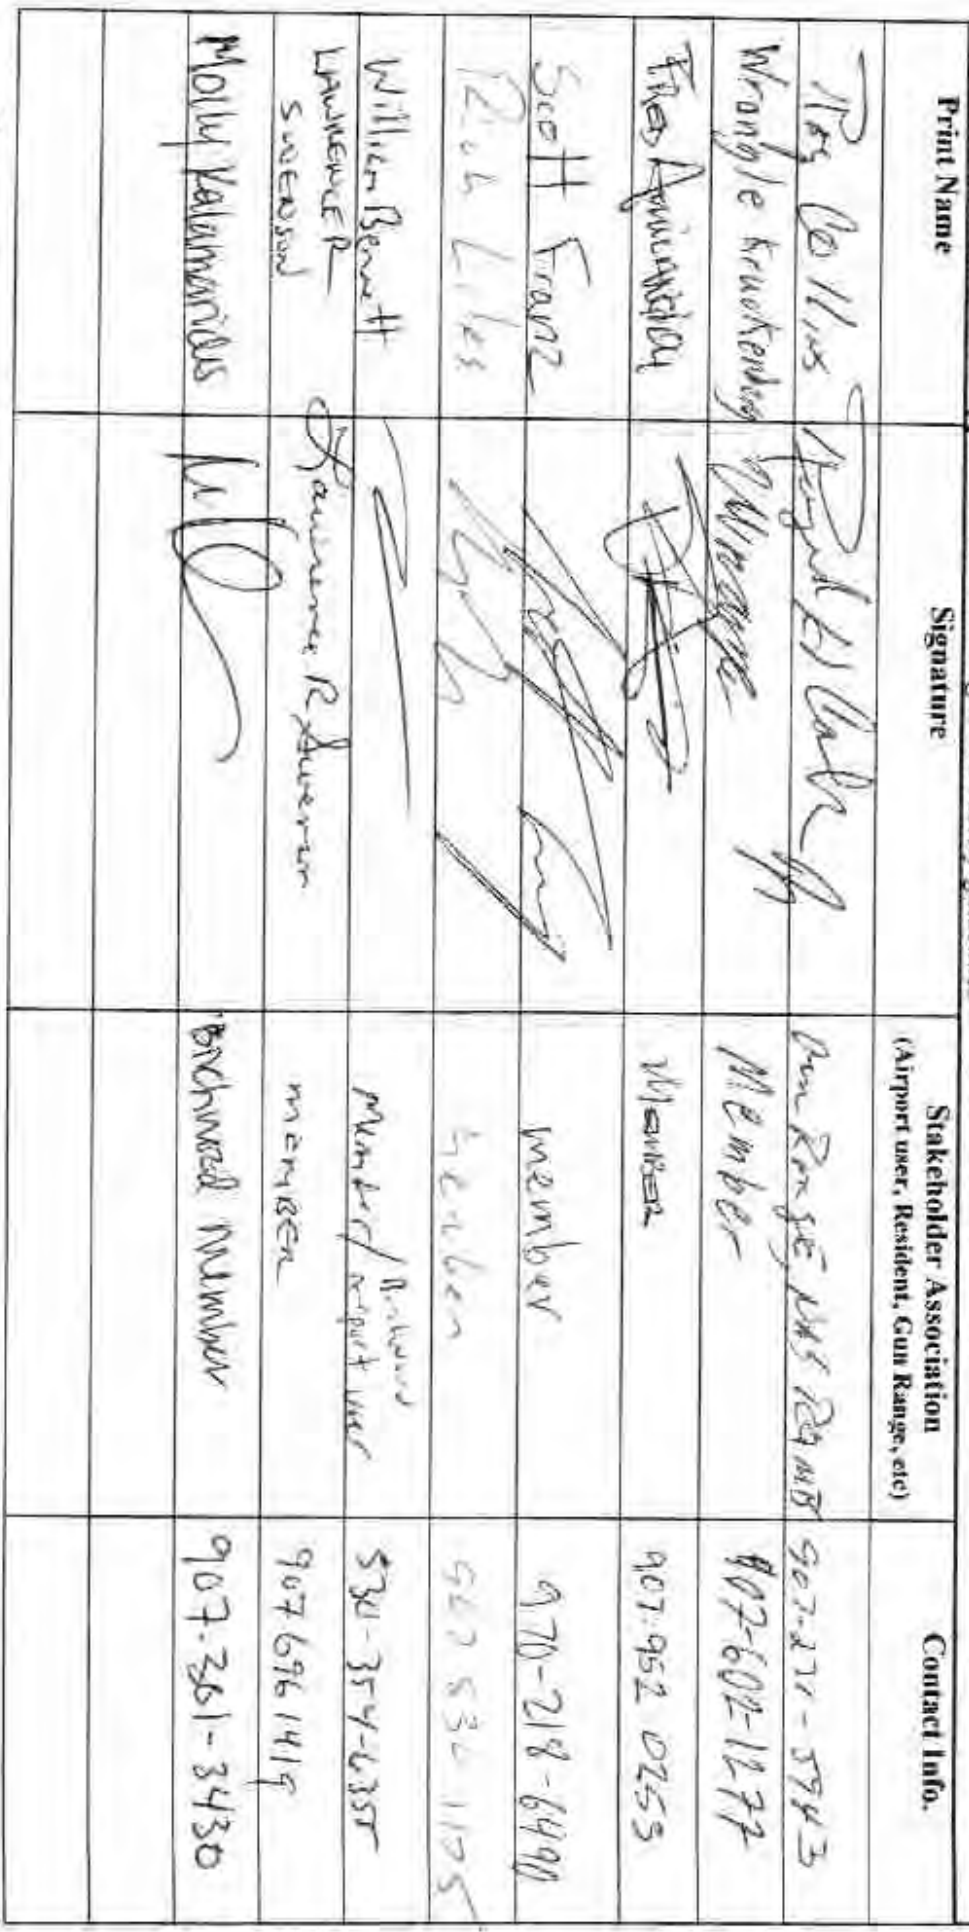 Print Name
Signature
Stakeholder Association
(Airport user, Resident, Gun Range, etc)
Contact Info.
Ray Collins
Gun Range,
Wrangle
Member
907-602-1277
Member
907-952 0253
Scott Franz
member
970-218-6490
Rich Liles
Member
William Bennett
Member/airport user
Birchwood
530-354-6355
LAWRENCE
SWENSON
Lawrence R Swenson
MEMBER
907 696 1419
Molly Kalamarides
Birchwood Member
907-361-3430